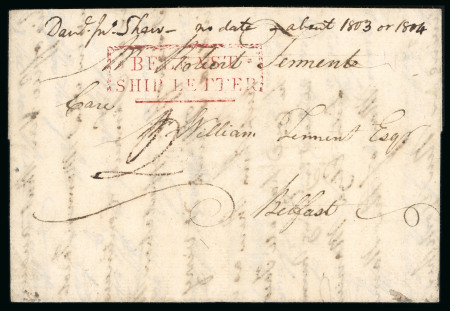 David Jnr. Shaw - no date - about 1803 or 1804
Mr Robert Tennent
BELFAST
SHIP LETTER
Care
William Tennent Esqr
Belfast